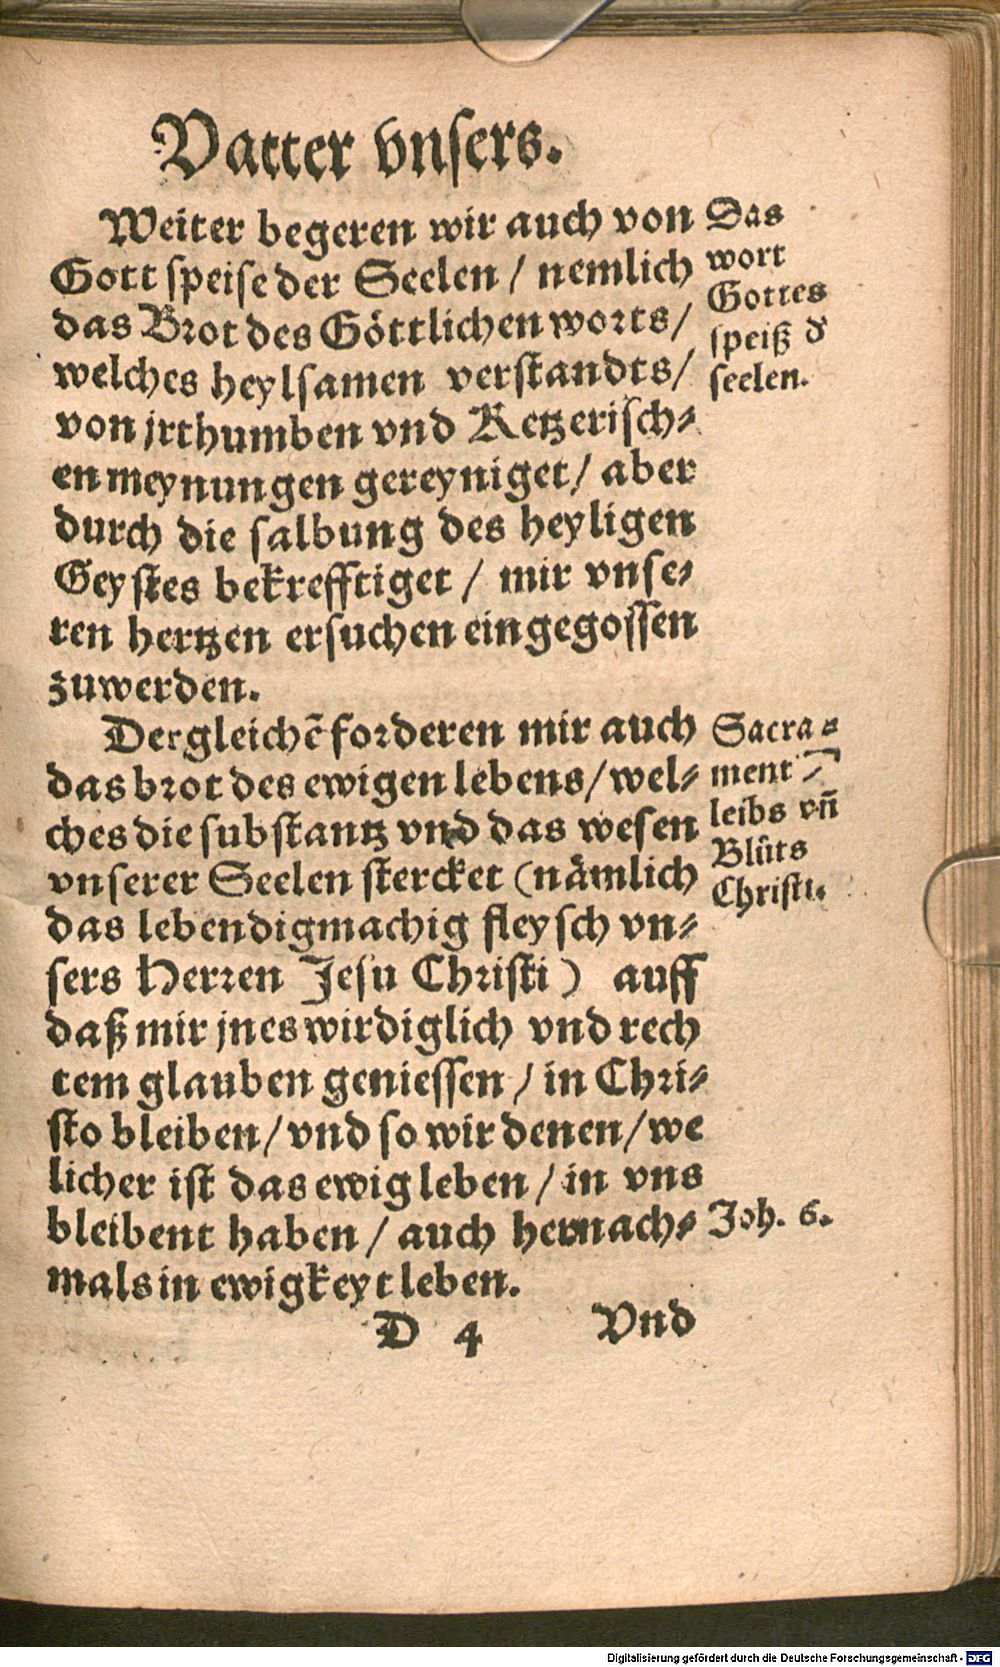 Vatter vnsers.
Weiter begeren wir auch von
Gott speise der Seelen / nemlich
das Brot des Göttlichen worts /
welches heylsamen verstandts /
von jrthumben vnd Ketzerisch⸗
en meynungen gereyniget / aber
durch die salbung des heyligen
Geystes bekrefftiget / mir vnse⸗
ren hertzen ersuchen eingegossen
zuwerden.
Dergleichẽ forderen mir auch
das brot des ewigen lebens / wel⸗
ches die substantz vnd das wesen
vnserer Seelen stercket (nämlich
das lebendigmachig fleysch vn⸗
sers Herren Jesu Christi) auff
daß mir jnes wirdiglich vnd rech
tem glauben geniessen / in Chri⸗
sto bleiben / vnd so wir denen / we
licher ist das ewig leben / in vns
bleibent haben / auch hernach⸗
mals in ewigkeyt leben.
D 4 Vnd
Das
wort
Gottes
speiß d
seelen.
Sacra⸗
ment
leibs vñ
Blůts
Christi.
Joh. 6.
Digitalisierung gefördert durch die Deutsche Forschungsgemeinschaft - DFG